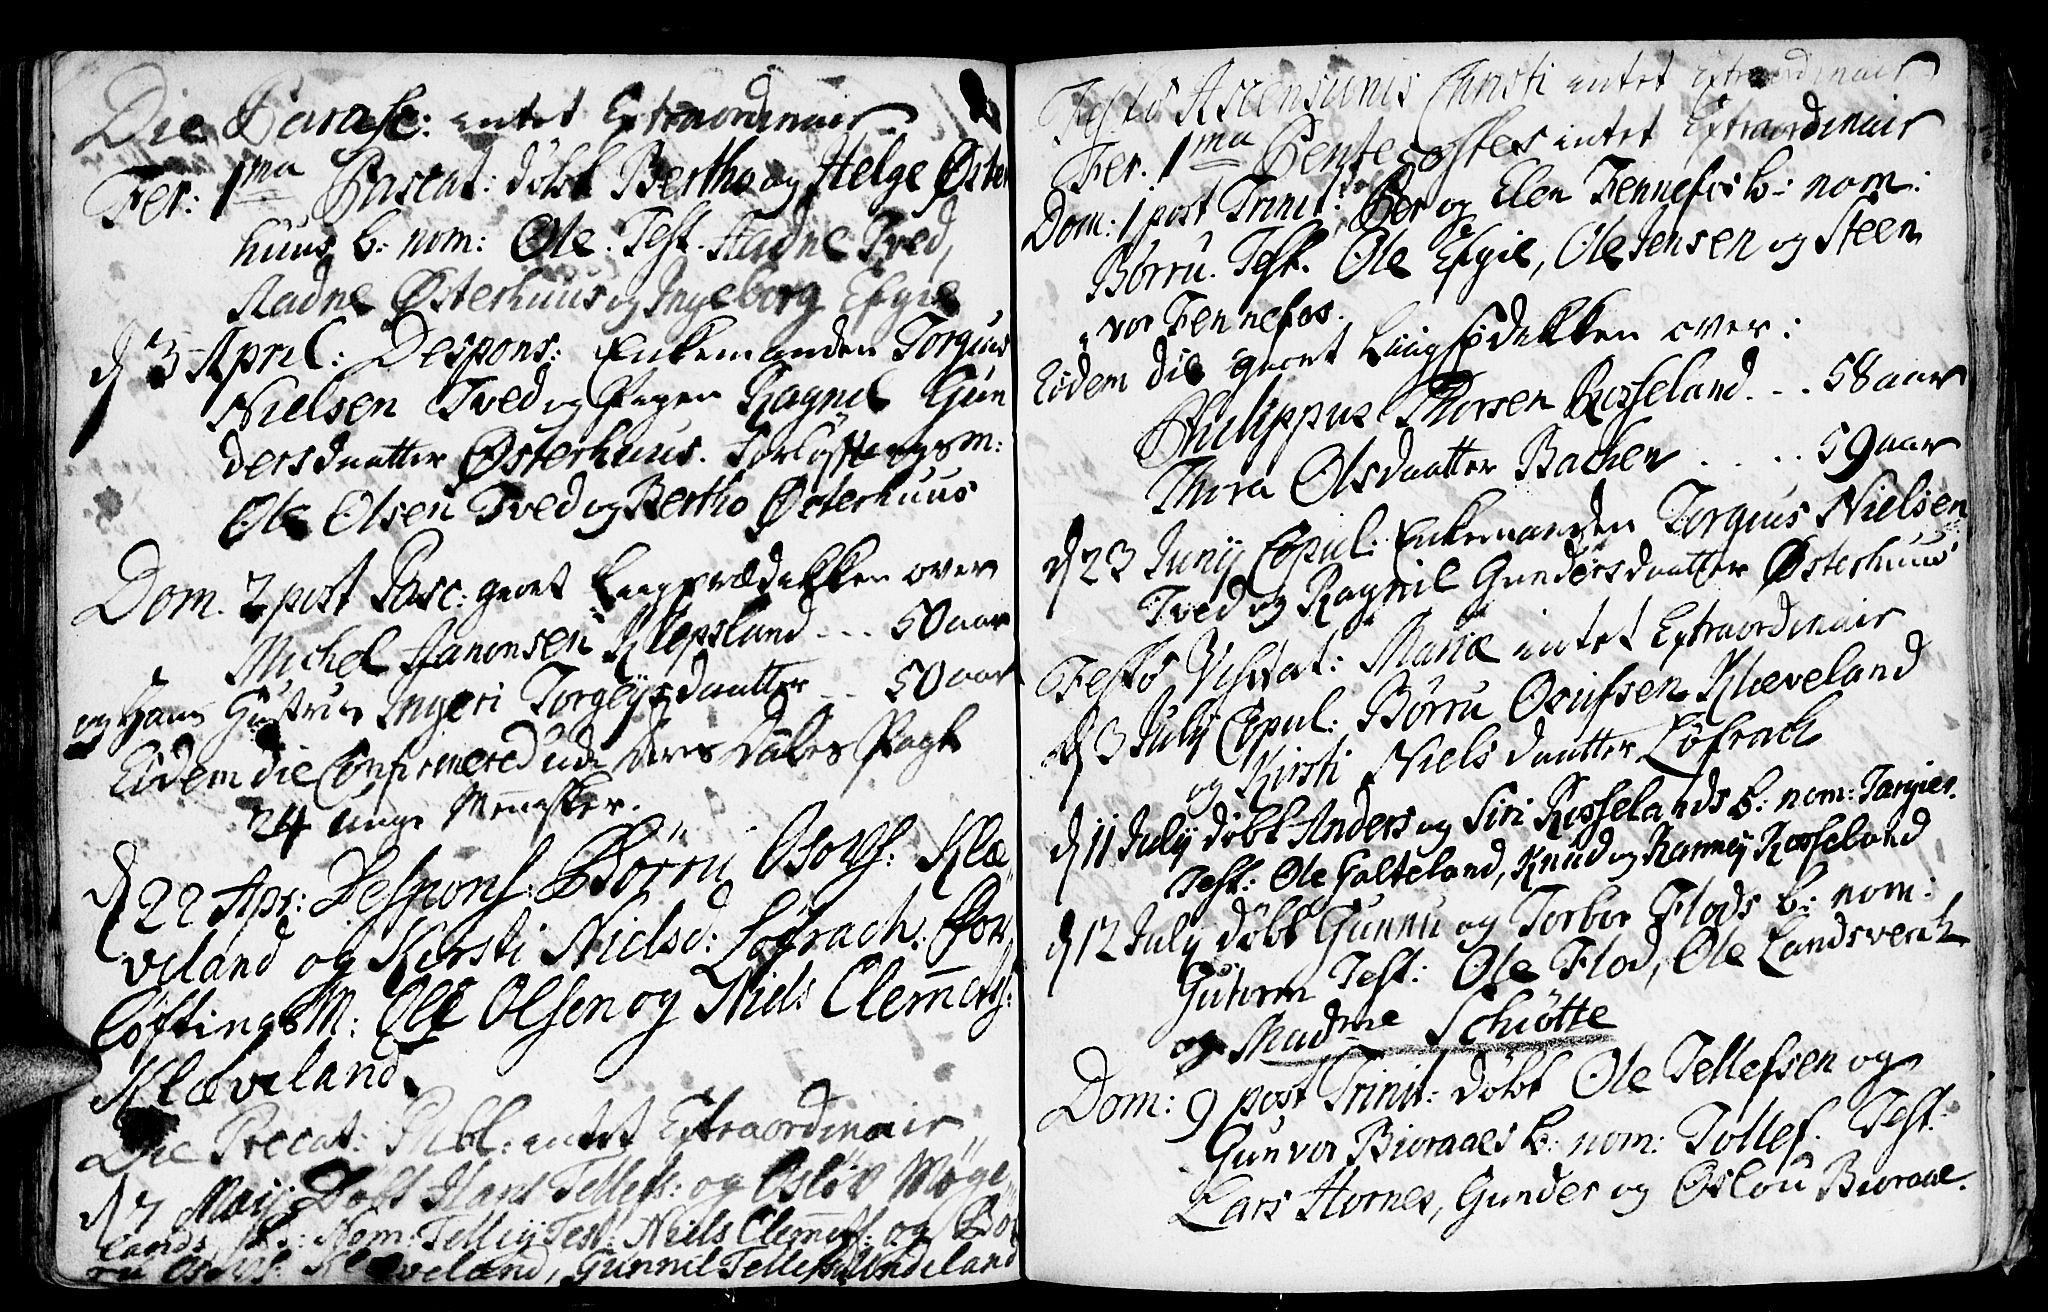 Die Parasc: intet Extraordinair
Fer: 1ma Pascat: døbt Bertho og Helge Øster
huus b: nom: Ole. Test. Aadne Tved,
Aadne Østerhuus og Ingeborg Efgie
d 3 April: Despons: Enkemanden Torgius
Nielsen Tved og Pigen Ragnil Gun
dersdaatter Østerhuus. Forløftningsm:
Ole Olsen Tved og Bertho Østerhuus
Dom. 2 post Pasc: giort Liigprædikken over
Michel Aanonsen Klepsland --- 50 aar
og Hans Hustrue Ingeri Torgeysdaatter -- 50 aar
Eodem die Confirmered udi deris Daabes Pagt
24 unge Mennesker.
d 22 Apr: Despons: Børru Osufs: Klæ
veland og Kirsti Nielsd: Løfrach: For
løftings M: Ole Olsen og Niels Clemets:
Klæveland
Die Precat: Publ: intet Extraordinair
d 7 Maij Døbt Hans Tellefs: og Osløv Møge
lands, bs: Nom: Tellij Test: Niels Clemets: og Bør
ru Osufs: Klæveland, Gunnil Tellefsd Undeland
Festo Ascensionis Christi intet Extraordinair
Fer. 1ma Pentecostes intet Extraordinair
Dom: 1 post Trinit: døbt Per og Elen Fennefos b: nom:
Børru. Test. Ole Efgie, Ole Jensen og Steen
vor Fennefos.
Eodem die giort Liigprædikken over:
Philippus Thorsen Rosseland. - - 58 aar
Thora Olsdaatter Bachen . . . . 59 aar
d 23 Junij Copul: Enkemanden Torgius Nielsen
Tved og Ragnil Gundersdaatter Østerhuus
Festo Visitat: Mariæ intet Extraordinair
d 3 Julij Copul: Børru Osufsen Klæveland
og Kirsti Nielsdaatter Løfrach
d 11 Julij døbt Anders og Siri Rosselands b: nom: Targier.
Test: Ole Galteland, Knud og Rannej Rosseland
d 12 Julij døbt Gunnu og Torbor Flods b: nom:
Gutorm Test: Ole Flod, Ole Landsverch
og Madme Schiøtte
Dom: 9 post Trinit: døbt Ole Tellefsen og
Gunvor Bioraaes b: nom: Tollef. Test:
Lars Hornes, Gunder og Oslou Bioraae.